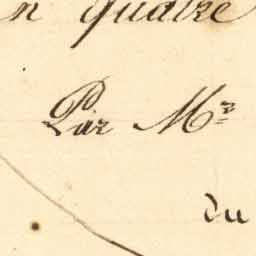 n quatre
Par Mr
du